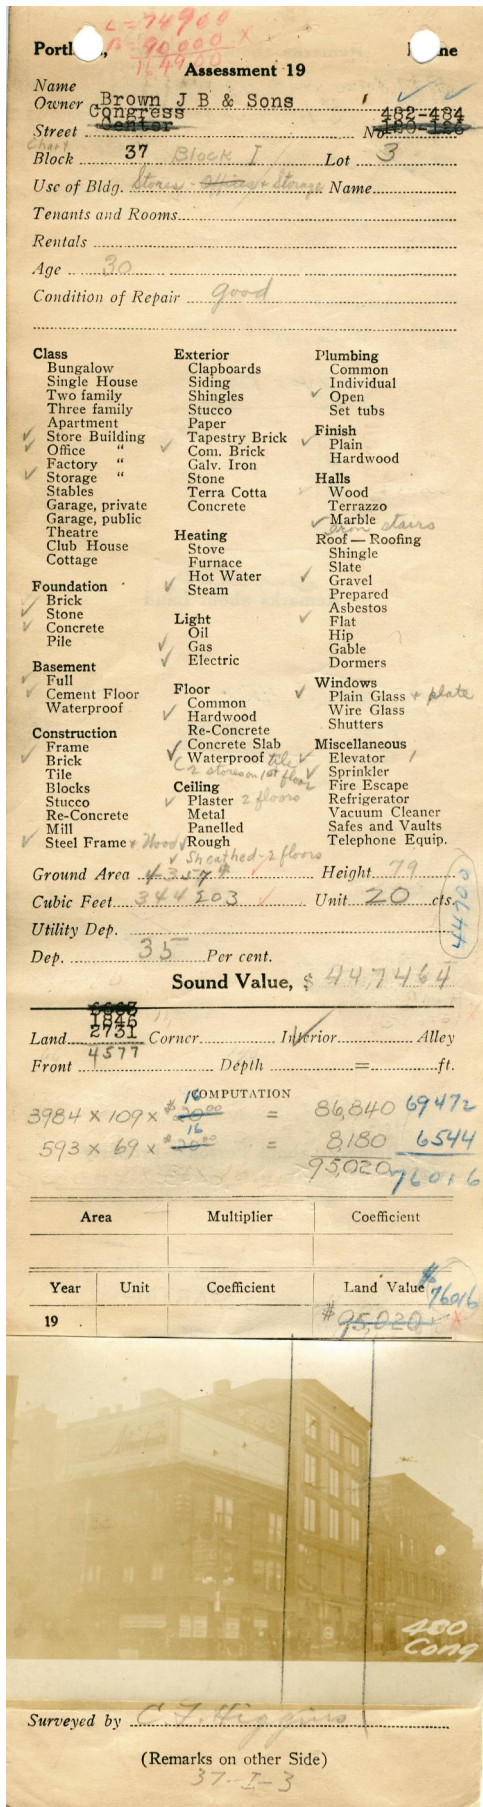 L = 74900
B = 90000 X
164900
Portland, Maine
Assessment 19
Name
Owner Brown J B & Sons
Congress 482-484
Street Center No 120-126
Chart
Block 37 Block I Lot 3
Use of Bldg. Stores - Offices & Storage Name
Tenants and Rooms
Rentals
Age 30
Condition of Repair good
Class
Bungalow
Single House
Two family
Three family
Apartment
✓ Store Building
✓ Office "
Factory "
✓ Storage "
Stables
Garage, private
Garage, public
Theatre
Club House
Cottage
Foundation
✓ Brick
✓ Stone
✓ Concrete
Pile
Basement
✓ Full
✓ Cement Floor
Waterproof
Construction
Frame
✓ Brick
Tile
Blocks
Stucco
Re-Concrete
✓ Mill
✓ Steel Frame & Wood
Exterior
Clapboards
Siding
Shingles
Stucco
Paper
Tapestry Brick
✓ Com. Brick
Galv. Iron
Stone
Terra Cotta
Concrete
Heating
Stove
Furnace
Hot Water
✓ Steam
Light
Oil
✓ Gas
✓ Electric
Floor
Common
✓ Hardwood
Re-Concrete
✓ Concrete Slab
✓ Waterproof tile
(2 stores on 1st floor
Ceiling
✓ Plaster 2 floors
Metal
Panelled
✓ Rough
✓ Sheathed - 2 floors
Plumbing
Common
Individual
✓ Open
Set tubs
Finish
✓ Plain
Hardwood
Halls
Wood
Terrazzo
✓ Marble
Iron stairs
Roof — Roofing
Shingle
Slate
✓ Gravel
Prepared
Asbestos
✓ Flat
Hip
Gable
Dormers
Windows
✓ Plain Glass & plate
Wire Glass
Shutters
Miscellaneous
✓ Elevator 1
✓ Sprinkler
Fire Escape
Refrigerator
Vacuum Cleaner
Safes and Vaults
Telephone Equip.
Ground Area 4357 Height 79
Cubic Feet 344203 Unit 20 cts.
44700
Utility Dep.
Dep. 35 Per cent.
Sound Value, $ 447464
1846
Land 2731 Corner Interior ✓ Alley
4577
Front Depth = ft.
COMPUTATION
3984 x 109 x $20.00 16 = 86,840 69472
593 x 69 x $20.00 16 = 8,180 6544
95,020 76016
Area Multiplier Coefficient
Year Unit Coefficient Land Value
$76016
19 $95,020 X
480
Cong
Surveyed by C. F. Higgins
(Remarks on other Side)
37-I-3